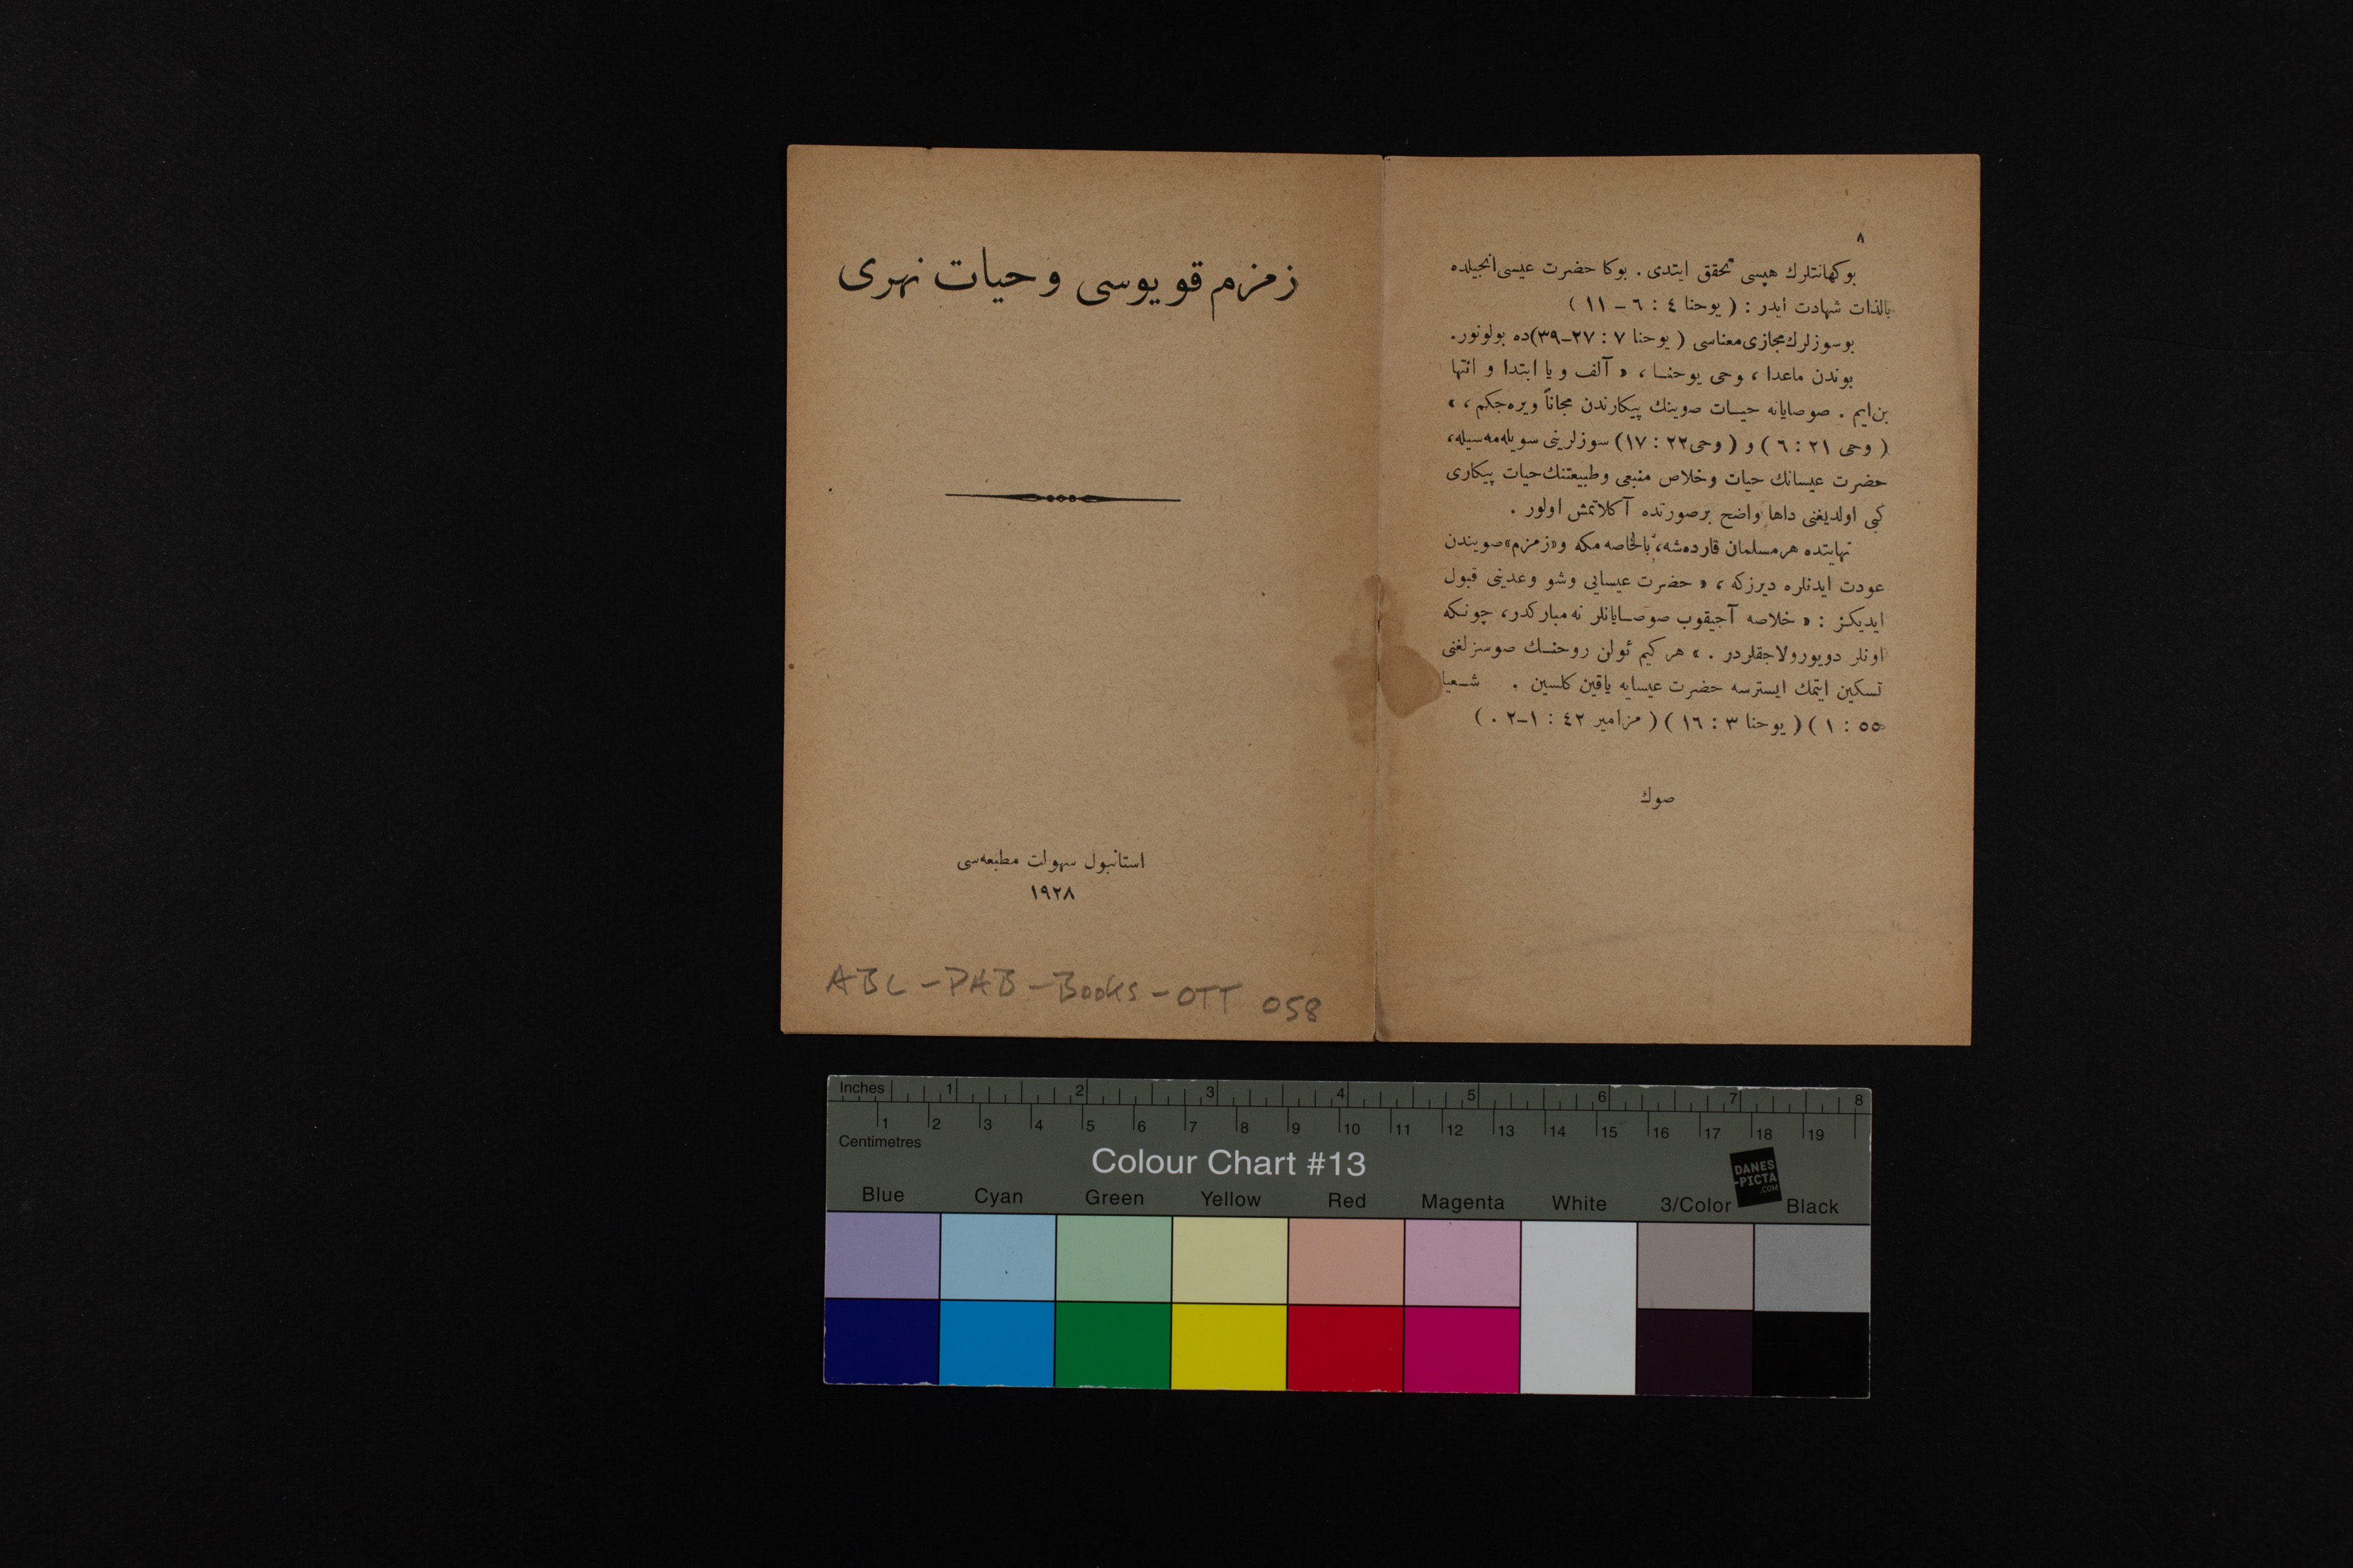 زمزم قويوسى و حيات نهرى
استانبول سهولت مطبعه‌سى
١٩٢٨
ABC - PAB - Books - OTT 058
٨
بوكهانتلرك هپسى تحقق ايتدى . بوكا حضرت عيسى انجيلده
بالذات شهادت ايدر : ( يوحنا ٤ : ٦ – ١١ )
بوسوزلرك مجازى معناسى ( يوحنا ٧ : ٢٧–٣٩)ده بولونور.
بوندن ماعدا ، وحى يوحنا ، « آلف و يا ابتدا و انتها
بن‌ايم . صوصايانه حيات صوينك پيكارندن مجاناً ويره‌جكم ، »
( وحى ٢١ : ٦ ) و ( وحى ٢٢ : ١٧) سوزلرينى سويله‌مه‌سيله،
حضرت عيسانك حيات و خلاص منبعى و طبيعتنك حيات پيكارى
كبى اولديغنى داها واضح برصورتده آكلاتمش اولور .
نهايتده هر مسلمان قارده‌شه، بالخاصه مكه و «زمزم» صويندن
عودت ايدنلره ديرزكه ، « حضرت عيسايى وشو وعدينى قبول
ايديكز : « خلاصه آجيقوب صوصايانلر نه مباركدر، چونكه
اونلر دويورولاجقلردر . » هر كيم ئولن روحنك صوسزلغنى
تسكين ايتمك ايسترسه حضرت عيسايه ياقين كلسين . شعيا
٥٥ : ١ ) ( يوحنا ٣ : ١٦ ) ( مزامير ٤٢ : ١–٢ . )
صوك
Inches 1 2 3 4 5 6 7 8
1 2 3 4 5 6 7 8 9 10 11 12 13 14 15 16 17 18 19
Centimetres
Colour Chart #13
DANES
-PICTA
.COM
Blue Cyan Green Yellow Red Magenta White 3/Color Black